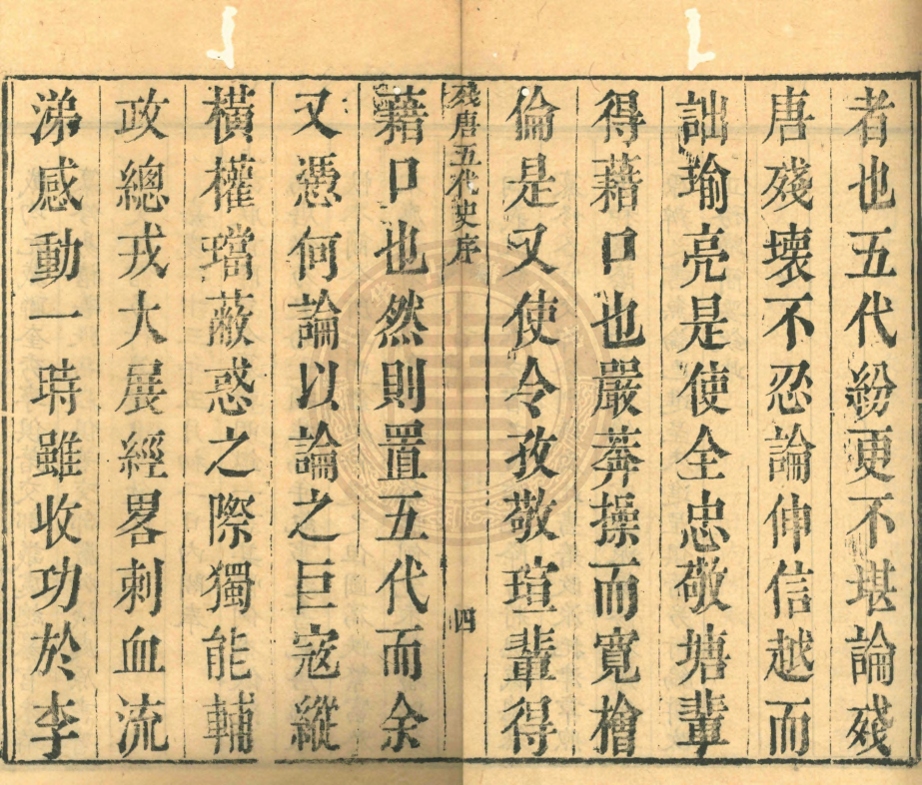 者也五代紛更不堪論殘
唐殘壞不忍論伸信越而
詘瑜亮是使全忠敬塘輩
得藉口也嚴莽操而寬檜
倫是又使令孜敬瑄輩得
殘唐五代史序 四
藉口也然則置五代而余
又憑何論以論之巨寇縱
橫權璫蔽惑之際獨能輔
政總戎大展經畧刺血流
涕感動一時雖收功於李